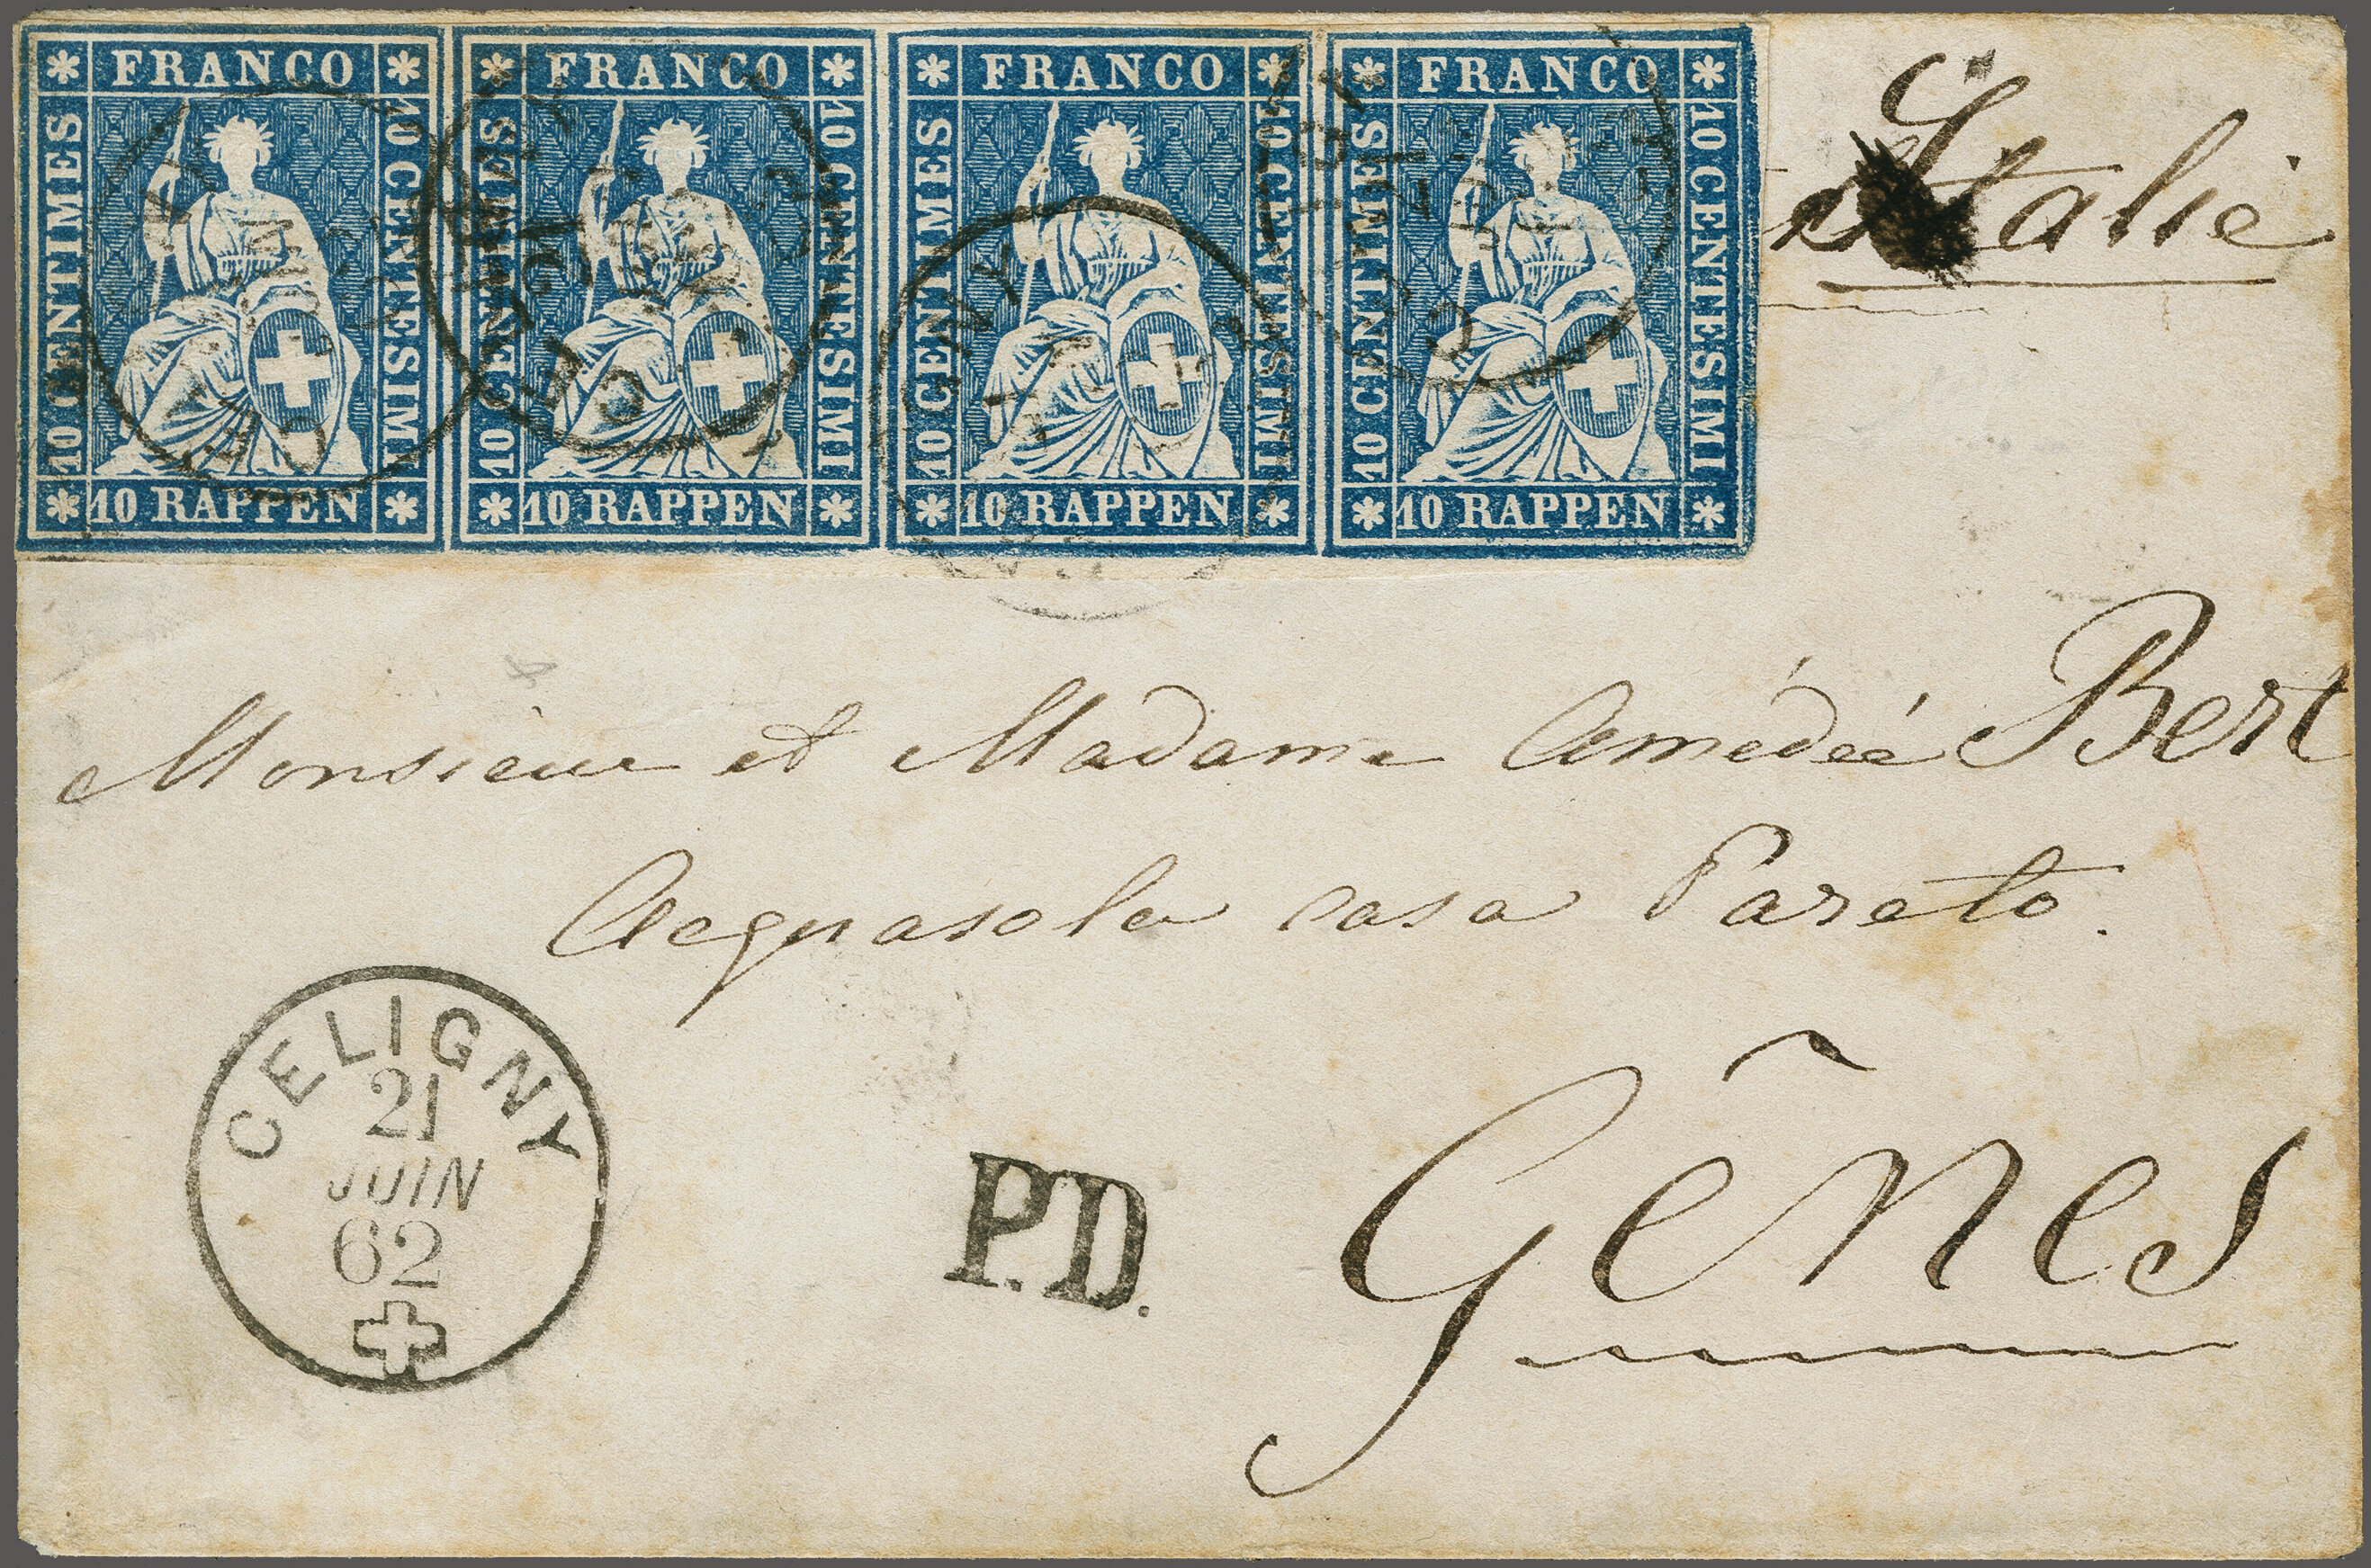 FRANCO FRANCO FRANCO FRANCO
10 CENTIMES 10 CENTESIMI 10 CENTIMES 10 CENTESIMI 10 CENTIMES 10 CENTESIMI 10 CENTIMES 10 CENTESIMI
10 RAPPEN 10 RAPPEN 10 RAPPEN 10 RAPPEN
Italie
Monsieur et Madame Amédée Bert
Acquasola casa Pareto.
CELIGNY
21
JUIN
62
P.D.
Gênes